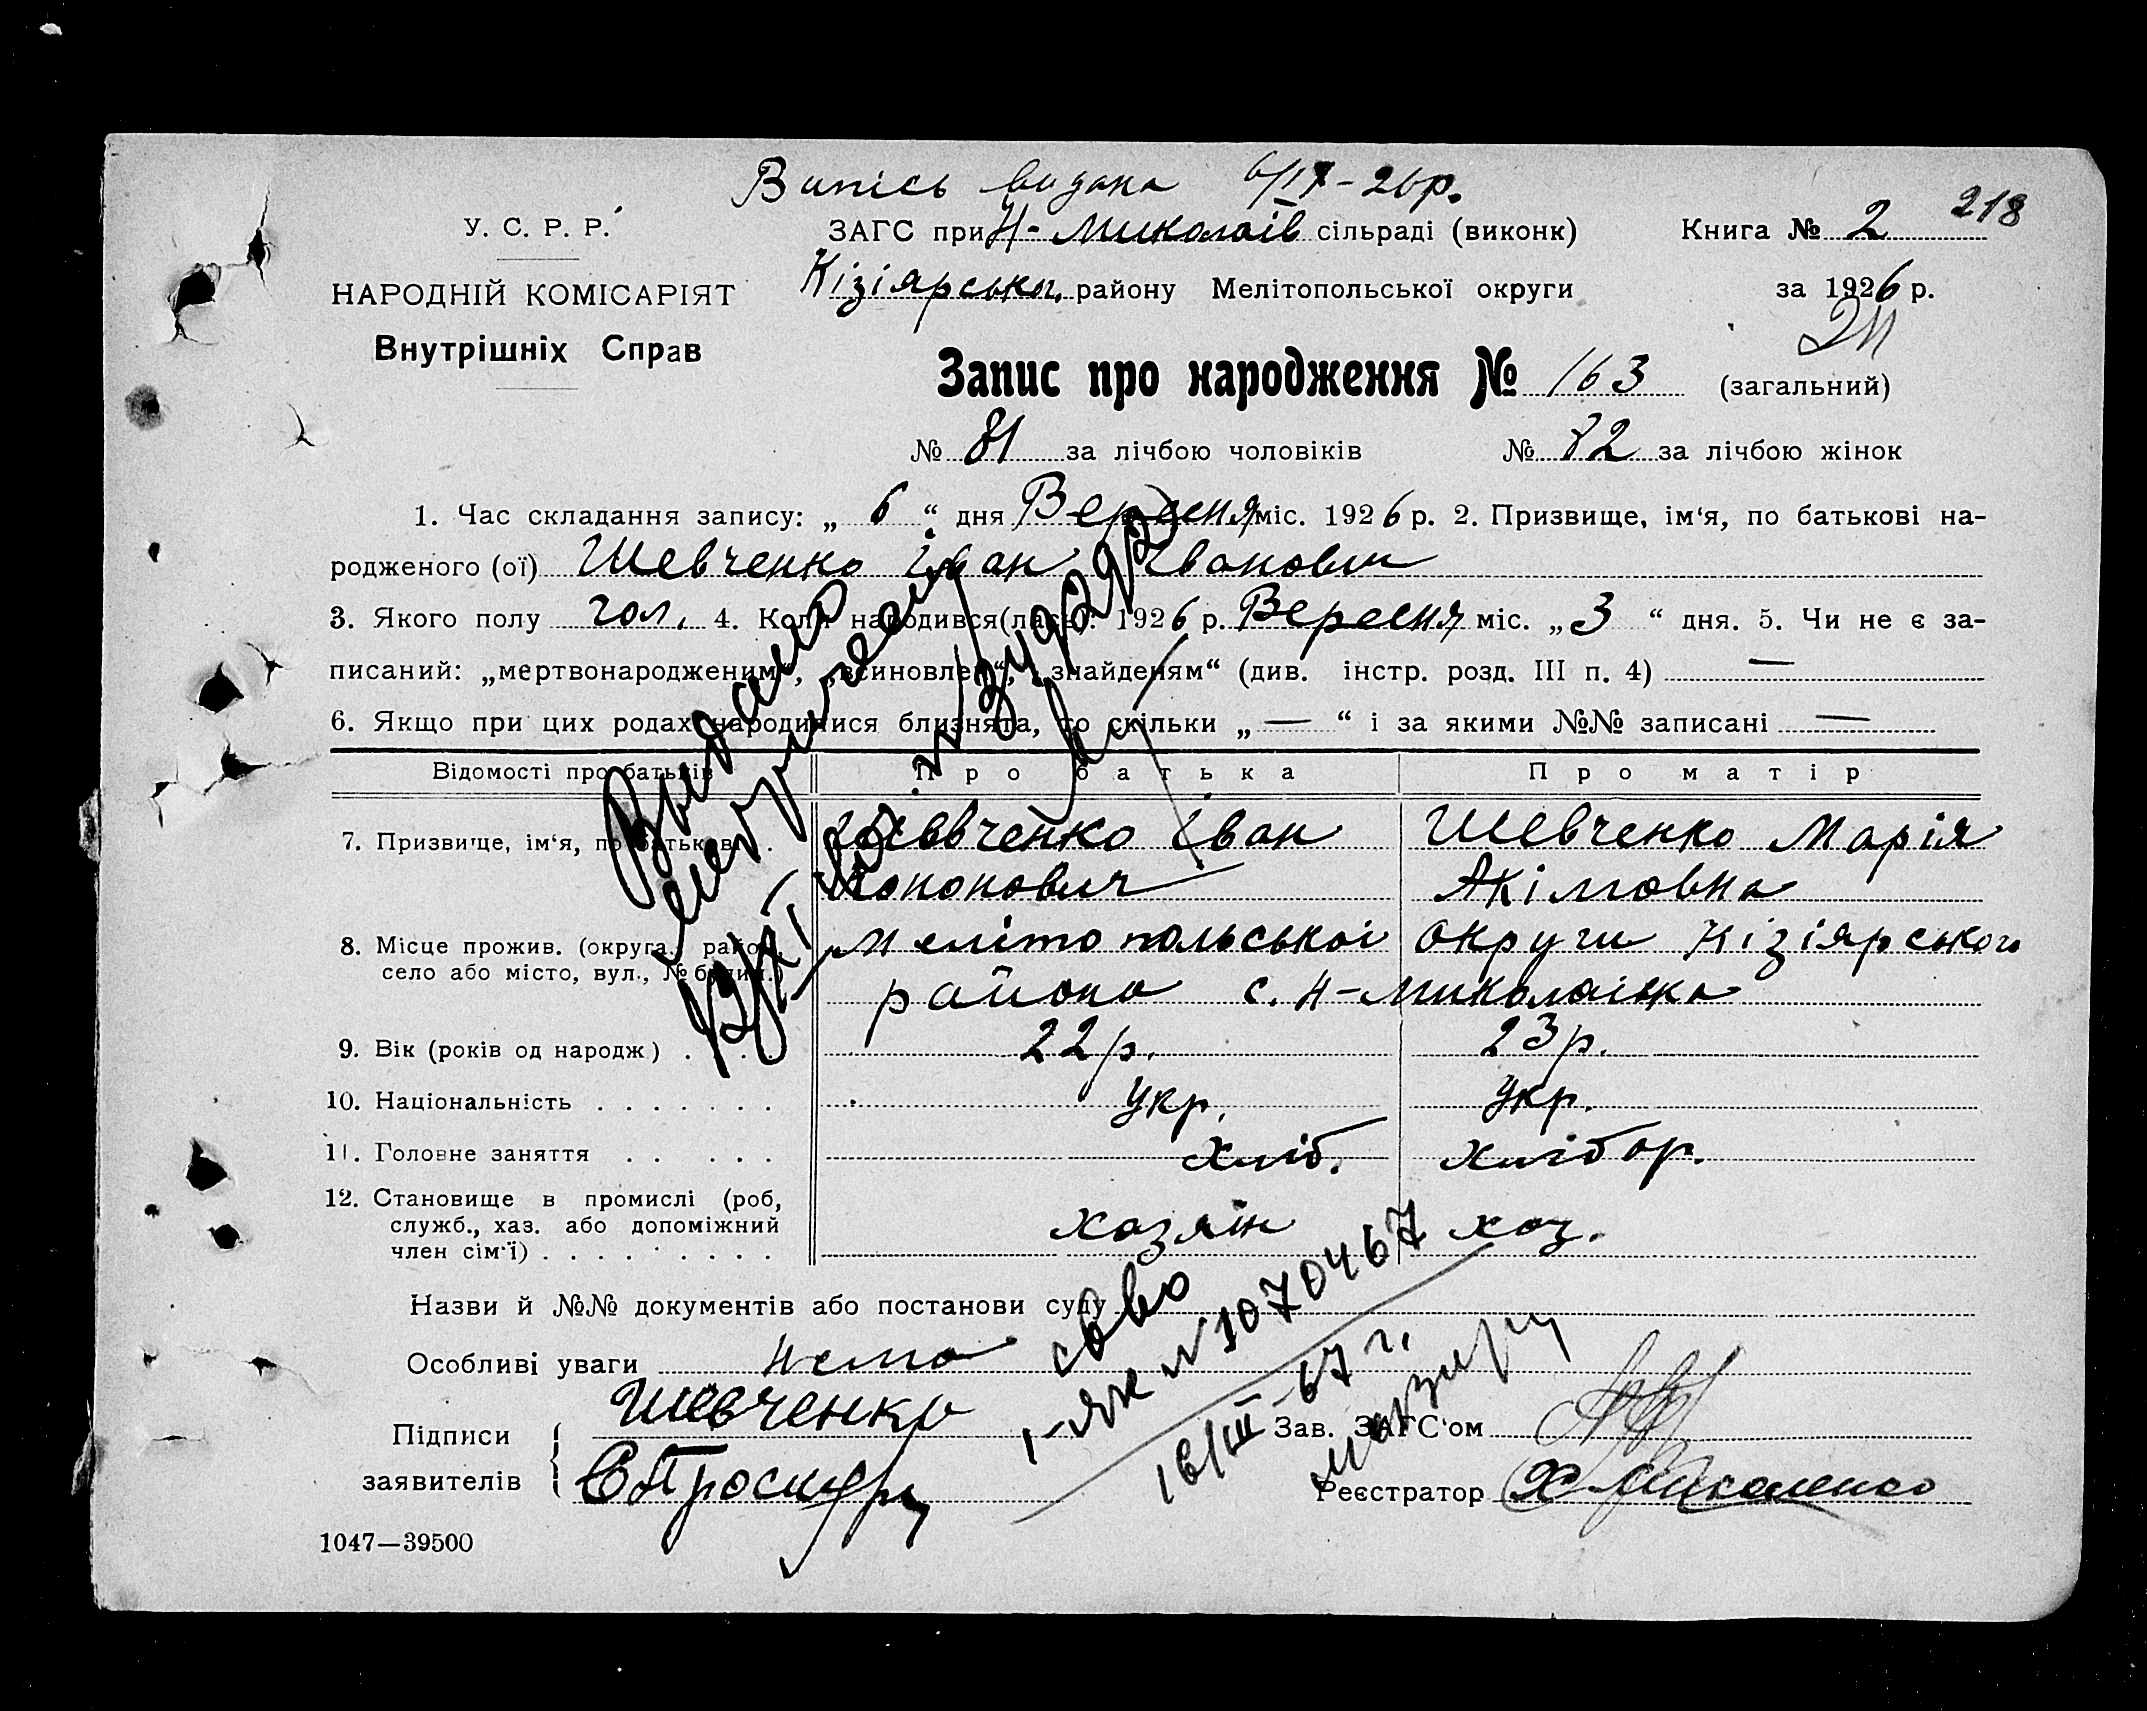 Випісь видана 6/IX-26р.
218
У. С. Р. Р.
ЗАГС при Н-Миколаїв сільраді (виконк)
Книга № 2
НАРОДНІЙ КОМІСАРІЯТ
Кізіярськ. району Мелітопольської округи
за 1926 р.
Внутрішніх Справ
Запис про народження № 163 (загальний)
№ 81 за лічбою чоловіків № 82 за лічбою жінок
1. Час складання запису: „ 6 “ дня Вересня міс. 1926 р. 2. Призвище, ім‘я, по батькові на-
родженого (ої) Шевченко Іван Іванович
3. Якого полу чол. 4. Коли народився(лась): 1926 р. Вересня міс. „ 3 “ дня. 5. Чи не є за-
писаний: „мертвонародженим“, „всиновлен“, „знайденям“ (див. інстр. розд. III п. 4) —
6. Якщо при цих родах народилися близнята, то скільки „ — “ і за якими №№ записані —
Відомості про батьків
Про батька
Про матір
7. Призвище, ім‘я, по батьков.
Шевченко Іван
Шевченко Марія
Кононович
Акімовна
8. Місце прожив. (округа, район,
село або місто, вул., № будин.)
Мелітопольської округи Кізіярського
района с. Н-Миколаївка
9. Вік (років од народж)
22 р.
23 р.
10. Національність
Укр.
Укр.
11. Головне заняття
хліб.
хлібор.
12. Становище в промислі (роб,
служб., хаз. або допоміжний
член сім‘ї)
хазяїн
хоз.
Назви й №№ документів або постанови суду
Особливі уваги нема
Підписи
заявителів
Шевченко
Зав. ЗАГС‘ом
Реєстратор
1047—39500
Выдано
свво
I-ЯЖ №1070467
16/III-67 г.